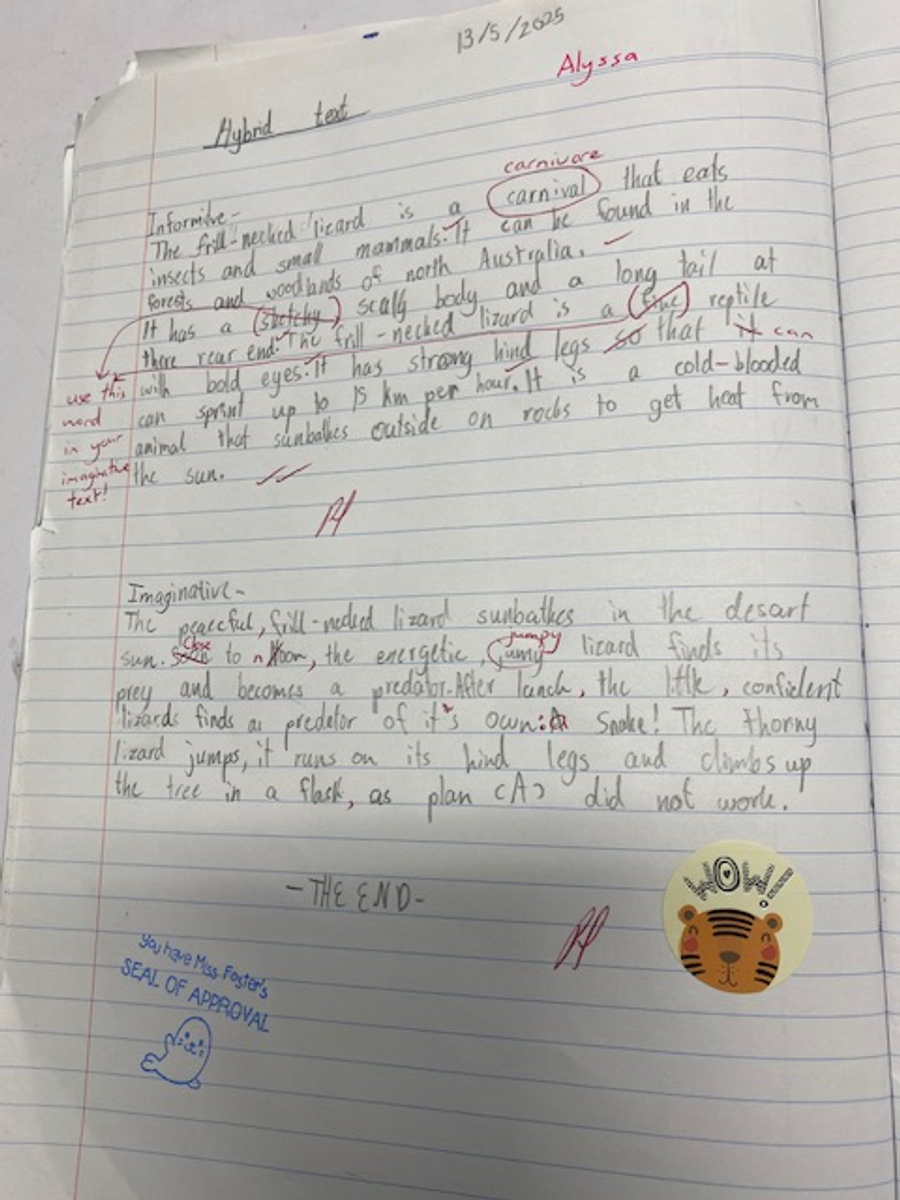 13/5/2025
Alyssa
Hybrid text
carnivore
Informitve-
The frill-necked licard is a carnival that eats
insects and small mammals. It can be found in the
forests and woodlands of north Australia.
It has a sketchy scaly body and a long tail at
there rear end. The frill-necked lizard is a reptile
with bold eyes. It has strong hind legs so that it can
can sprint up to 15 km per hour. It is a cold-blooded
animal that sunbathes outside on rocks to get heat from
the sun.
use this
word
in your
imaginative
text!
Imaginative-
The peaceful, frill-necked lizard sunbathes in the desart
Close jumpy
sun. Soon to noon, the energetic, jumy lizard finds its
prey and becomes a predator. After lunch, the little, confident
lizards finds a predetor of it's own: a Snake! The thorny
lizard jumps, it runs on its hind legs and climbs up
the tree in a flash, as plan (A) did not work.
-THE END-
WOW!
You have Miss Foster's
SEAL OF APPROVAL